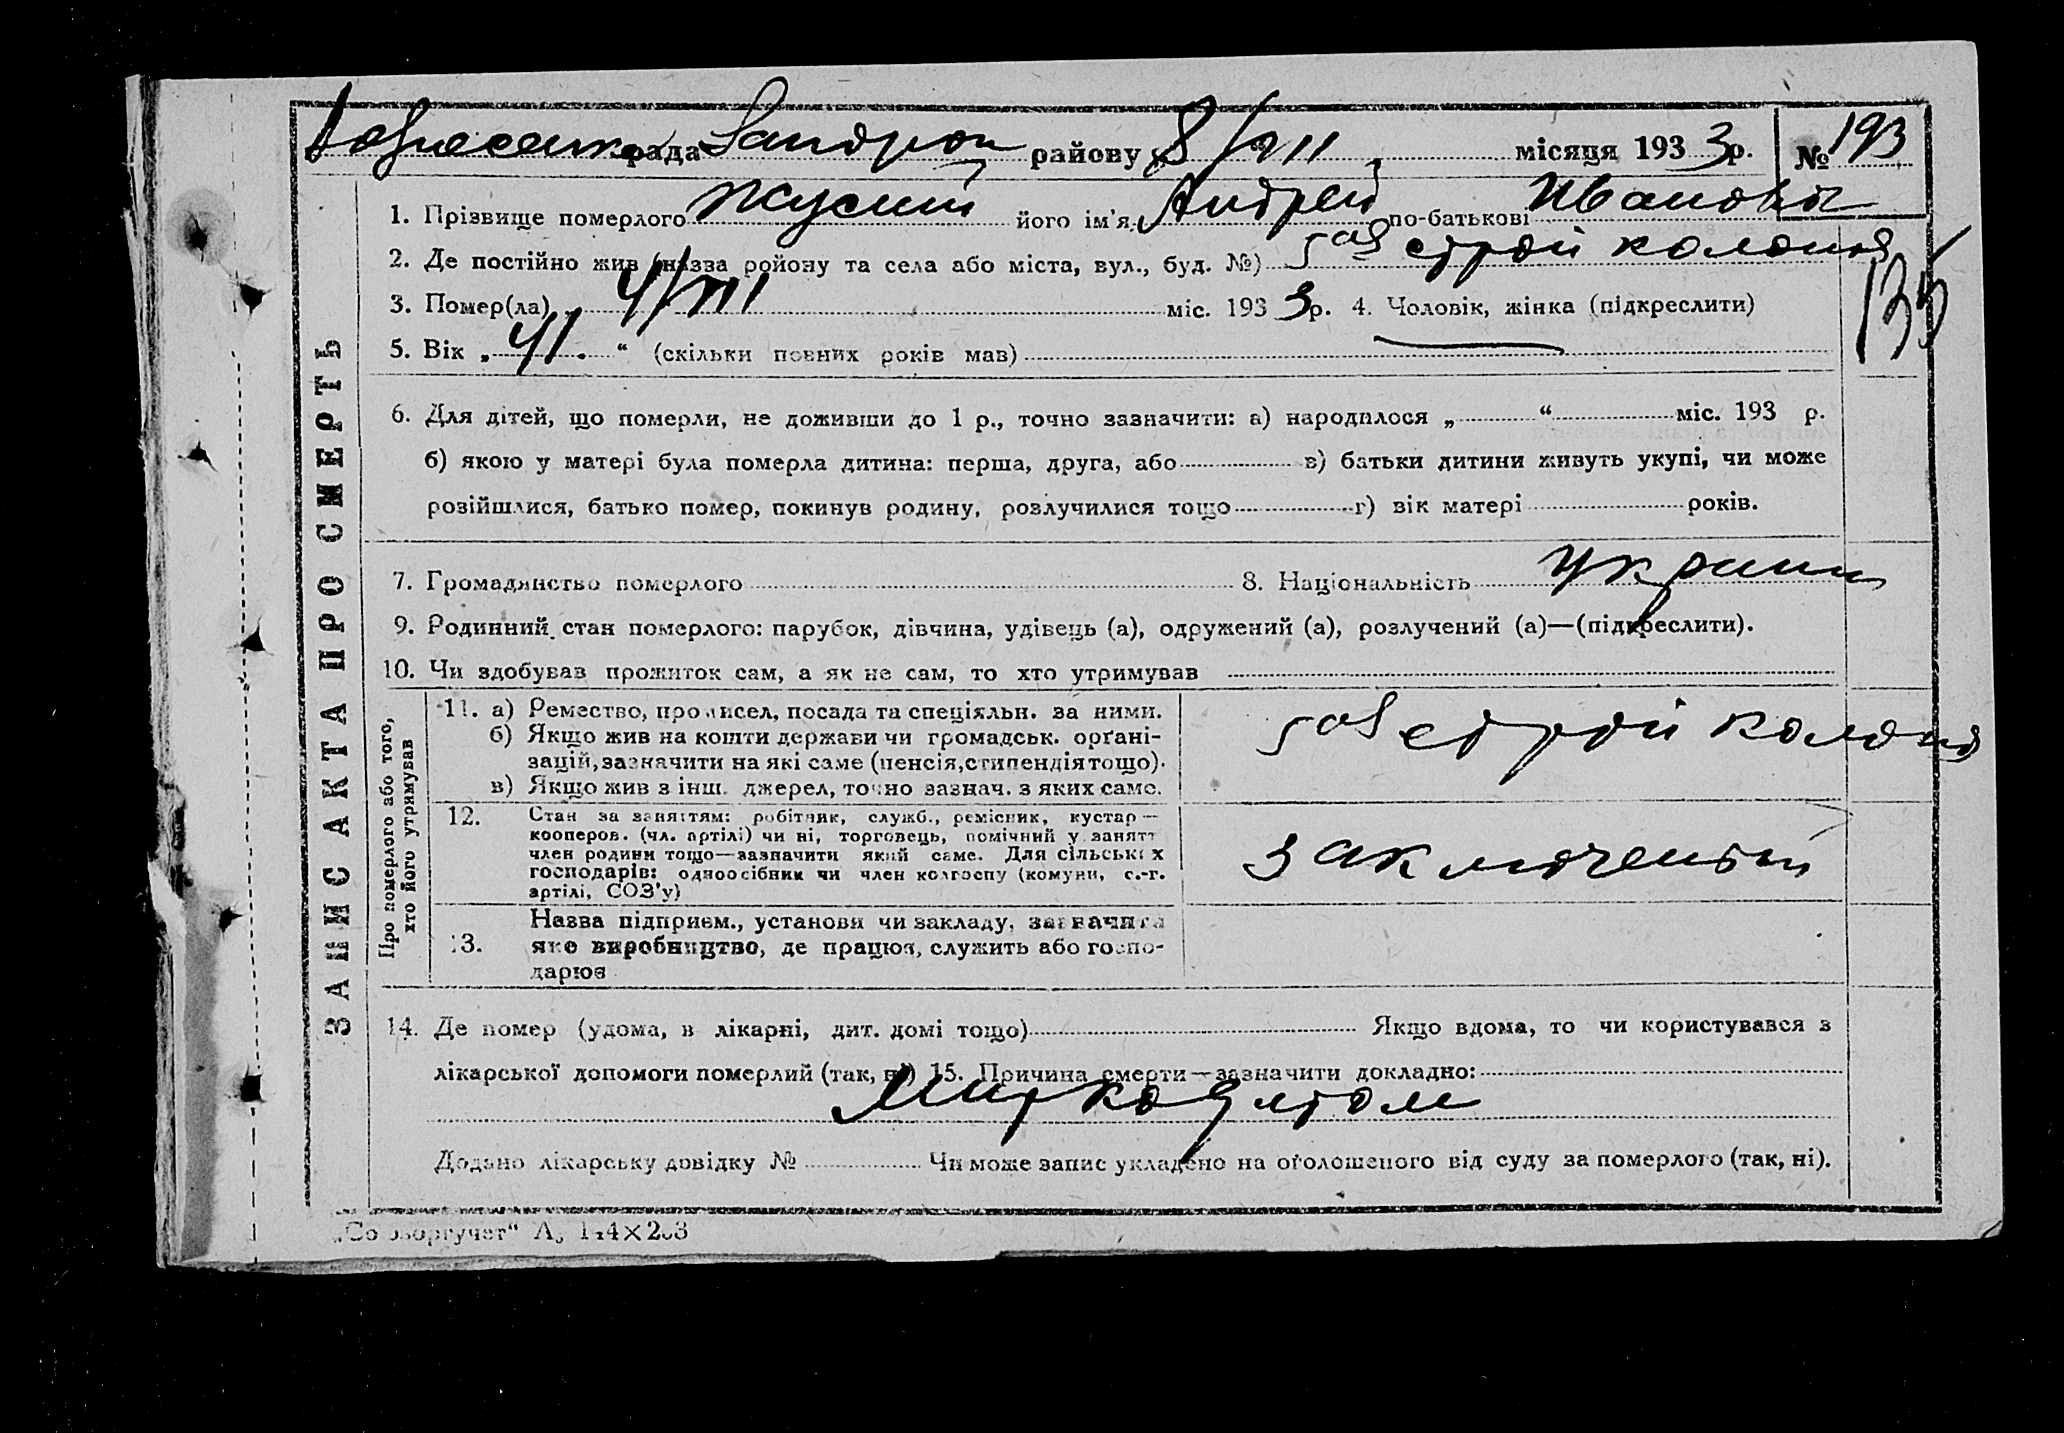 Вознесенка рада Запорож району „8/VII 193 3 р. місяця № 193
1. Прізвище померлого Жуский його ім'я Андрей по-батькові Иванович
2. Де постійно жив (назва ройону та села або міста, вул., буд. №) 5ая строй колония
135
3. Помер(ла) 4/VII міс. 193 3 р. 4. Чоловік, жінка (підкреслити)
5. Вік „ 41. “ (скільки повних років мав)
6. Для дітей, що померли, не доживши до 1 р., точно зазначити: а) народилося „ “ міс. 193 р.
б) якою у матері була померла дитина: перша, друга, або в) батьки дитини живуть укупі, чи може
розійшлися, батько помер, покинув родину, розлучилися тощо г) вік матері років.
7. Громадянство померлого 8. Національність украин
9. Родинний стан померлого: парубок, дівчина, удівець (а), одружений (а), розлучений (а)—(підкреслити).
10. Чи здобував прожиток сам, а як не сам, то хто утримував
ЗАПИС АКТА ПРО СМЕРТЬ
Про померлого або того,
хто його утримував
11. а) Ремество, промисел, посада та спеціяльн. за ними.
б) Якщо жив на кошти держави чи громадськ. орґані-
зацій, зазначити на які саме (пенсія, стипендія тощо).
в) Якщо жив з інш. джерел, точно зазнач. з яких саме.
5ая строй колония
12. Стан за заняттям: робітник, служб., ремісник, кустар—
кооперов. (чл. артілі) чи ні, торговець, помічний у занятт
член родини тощо—зазначити який саме. Для сільських
господарів: одноосібник чи член колгоспу (комуни, с.-г.
артілі, СОЗ'у)
заключеный
13. Назва підприєм., установи чи закладу, зазначити
яке виробництво, де працює, служить або госпо-
дарює
14. Де помер (удома, в лікарні, дит. домі тощо) Якщо вдома, то чи користувався з
лікарської допомоги померлий (так, ні) 15. Причина смерти—зазначити докладно:
Додано лікарську довідку № Чи може запис укладено на оголошеного від суду за померлого (так, ні).